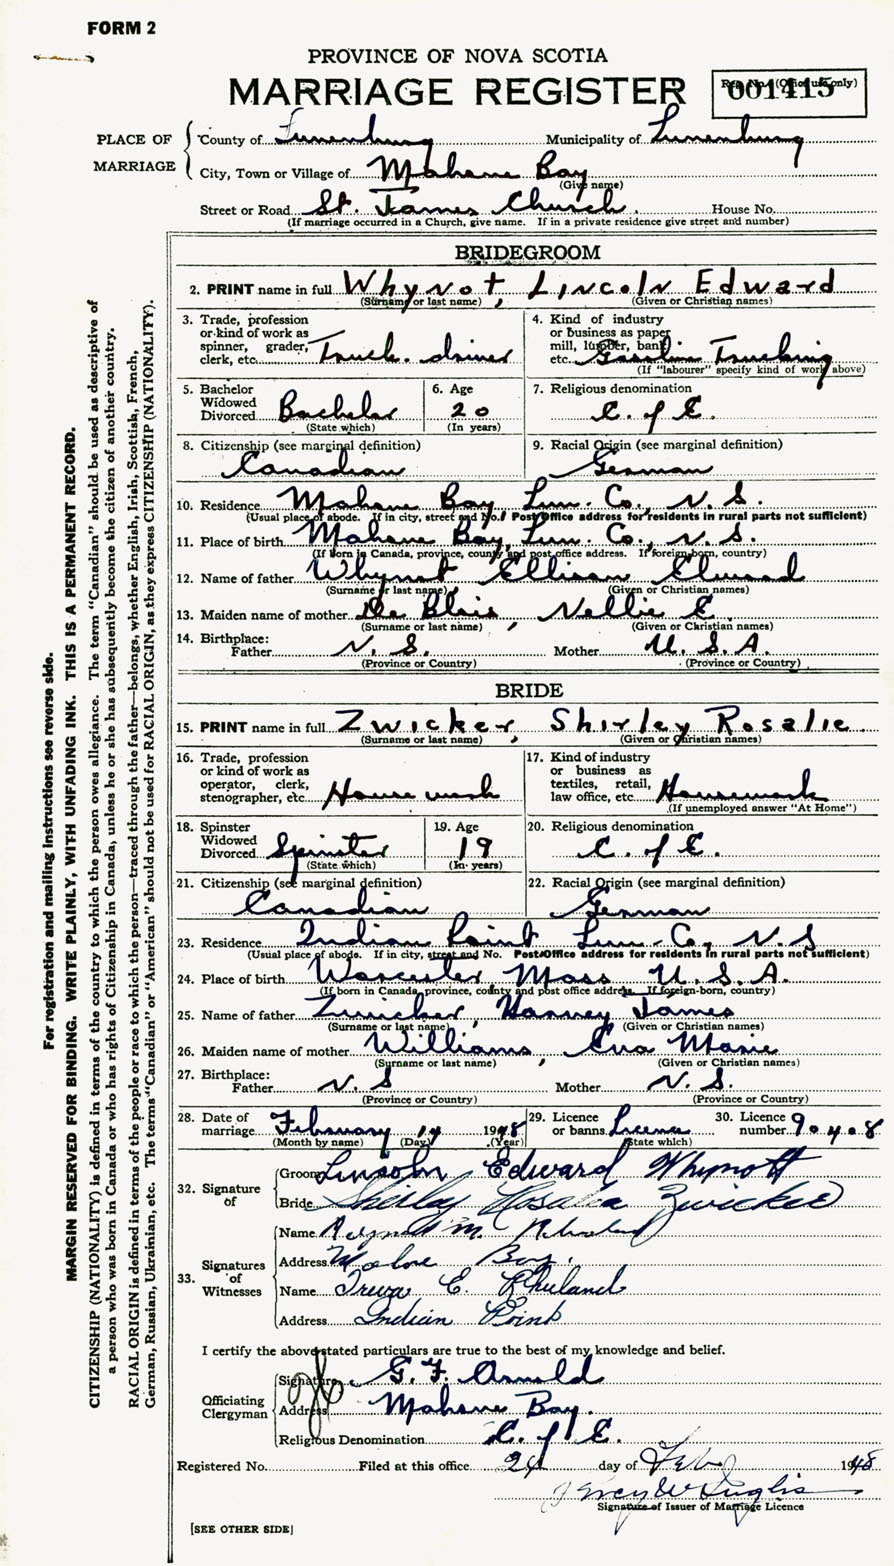 FORM 2
PROVINCE OF NOVA SCOTIA
MARRIAGE REGISTER
Reg. No. (Office use only)
001415
PLACE OF MARRIAGE
County of Lunenburg Municipality of Lunenburg
City, Town or Village of Mahone Bay
(Give name)
Street or Road St. James Church. House No.
(If marriage occurred in a Church, give name. If in a private residence give street and number)
BRIDEGROOM
2. PRINT name in full Whynot, Lincoln Edward
(Surname or last name) (Given or Christian names)
3. Trade, profession or kind of work as spinner, grader, clerk, etc. Truck driver
4. Kind of industry or business as paper mill, lumber, bank etc. Gasoline Trucking
(If "labourer" specify kind of work above)
5. Bachelor Widowed Divorced Bachelor
(State which)
6. Age 20
(In years)
7. Religious denomination C. of E.
8. Citizenship (see marginal definition) Canadian
9. Racial Origin (see marginal definition) German
10. Residence Mahone Bay Lun. Co., N. S.
(Usual place of abode. If in city, street and No. Post Office address for residents in rural parts not sufficient)
11. Place of birth Mahone Bay, Lun. Co., N. S.
(If born in Canada, province, county and post office address. If foreign-born, country)
12. Name of father Whynot, Ellison Elwood
(Surname or last name) (Given or Christian names)
13. Maiden name of mother De Blois, Nellie E.
(Surname or last name) (Given or Christian names)
14. Birthplace:
Father N. S. Mother U. S. A.
(Province or Country) (Province or Country)
BRIDE
15. PRINT name in full Zwicker, Shirley Rosalie
(Surname or last name) (Given or Christian names)
16. Trade, profession or kind of work as operator, clerk, stenographer, etc. Housework
17. Kind of industry or business as textiles, retail, law office, etc. Housework
(If unemployed answer "At Home")
18. Spinster Widowed Divorced Spinster
(State which)
19. Age 19
(In years)
20. Religious denomination C. of E.
21. Citizenship (see marginal definition) Canadian
22. Racial Origin (see marginal definition) German
23. Residence Indian Point Lun. Co., N. S
(Usual place of abode. If in city, street and No. Post Office address for residents in rural parts not sufficient)
24. Place of birth Worcester Mass U. S. A.
(If born in Canada, province, county and post office address. If foreign-born, country)
25. Name of father Zwicker, Harvey James
(Surname or last name) (Given or Christian names)
26. Maiden name of mother Williams, Eva Marie
(Surname or last name) (Given or Christian names)
27. Birthplace:
Father N. S Mother N. S.
(Province or Country) (Province or Country)
28. Date of marriage February 14 1948
(Month by name) (Day) (Year)
29. Licence or banns Licence
(State which)
30. Licence number 90408
32. Signature of
Groom Lincoln Edward Whynott
Bride Shirley Rosalie Zwicker
33. Signatures of Witnesses
Name M.
Address Mahone Bay.
Name Treva E. Rhuland
Address Indian Point
I certify the above stated particulars are true to the best of my knowledge and belief.
Officiating Clergyman
Signature G. F. Arnold
Address Mahone Bay.
Religious Denomination C. of E.
Registered No. Filed at this office 24 day of Feb 1948
Signature of Issuer of Marriage Licence
[SEE OTHER SIDE]
For registration and mailing instructions see reverse side.
MARGIN RESERVED FOR BINDING. WRITE PLAINLY, WITH UNFADING INK. THIS IS A PERMANENT RECORD.
CITIZENSHIP (NATIONALITY) is defined in terms of the country to which the person owes allegiance. The term "Canadian" should be used as descriptive of
a person who was born in Canada or who has rights of Citizenship in Canada, unless he or she has subsequently become the citizen of another country.
RACIAL ORIGIN is defined in terms of the people or race to which the person—traced through the father—belongs, whether English, Irish, Scottish, French,
German, Russian, Ukrainian, etc. The terms "Canadian" or "American" should not be used for RACIAL ORIGIN, as they express CITIZENSHIP (NATIONALITY).